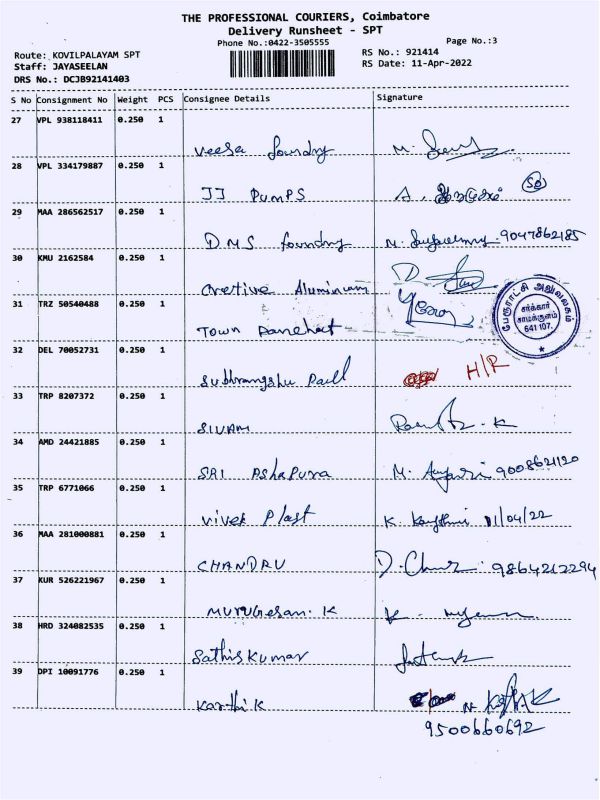 THE PROFESSIONAL COURIERS, Coimbatore
Delivery Runsheet - SPT
Phone No.:0422-3505555
Page No.:3
Route: KOVILPALAYAM SPT
Staff: JAYASEELAN
DRS No.: DCJB92141403
RS No.: 921414
RS Date: 11-Apr-2022
S No Consignment No Weight PCS Consignee Details Signature
27 VPL 938118411 0.250 1
Veesa foundry M.
28 VPL 334179887 0.250 1
JJ PUMPS A.
29 MAA 286562517 0.250 1
DMS foundry M. 9047862185
30 KMU 2162584 0.250 1
Creative Aluminium D
31 TRZ 50540488 0.250 1
Town Panchat
பேரூராட்சி அலுவலகம்
சர்க்கார்
சாமக்குளம்
641 107.
32 DEL 70052731 0.250 1
Subhrangshu Paul H/R
33 TRP 8207372 0.250 1
SIVAM K
34 AMD 24421885 0.250 1
SRI Ashapura M. 9008621120
35 TRP 6771066 0.250 1
Vivek Plast K. 11/04/22
36 MAA 281000881 0.250 1
CHANDRU D. 9864212294
37 KUR 526221967 0.250 1
MURUGesan. K K.
38 HRD 324082535 0.250 1
Sathis Kumar
39 DPI 10091776 0.250 1
Karthik N
9500660692